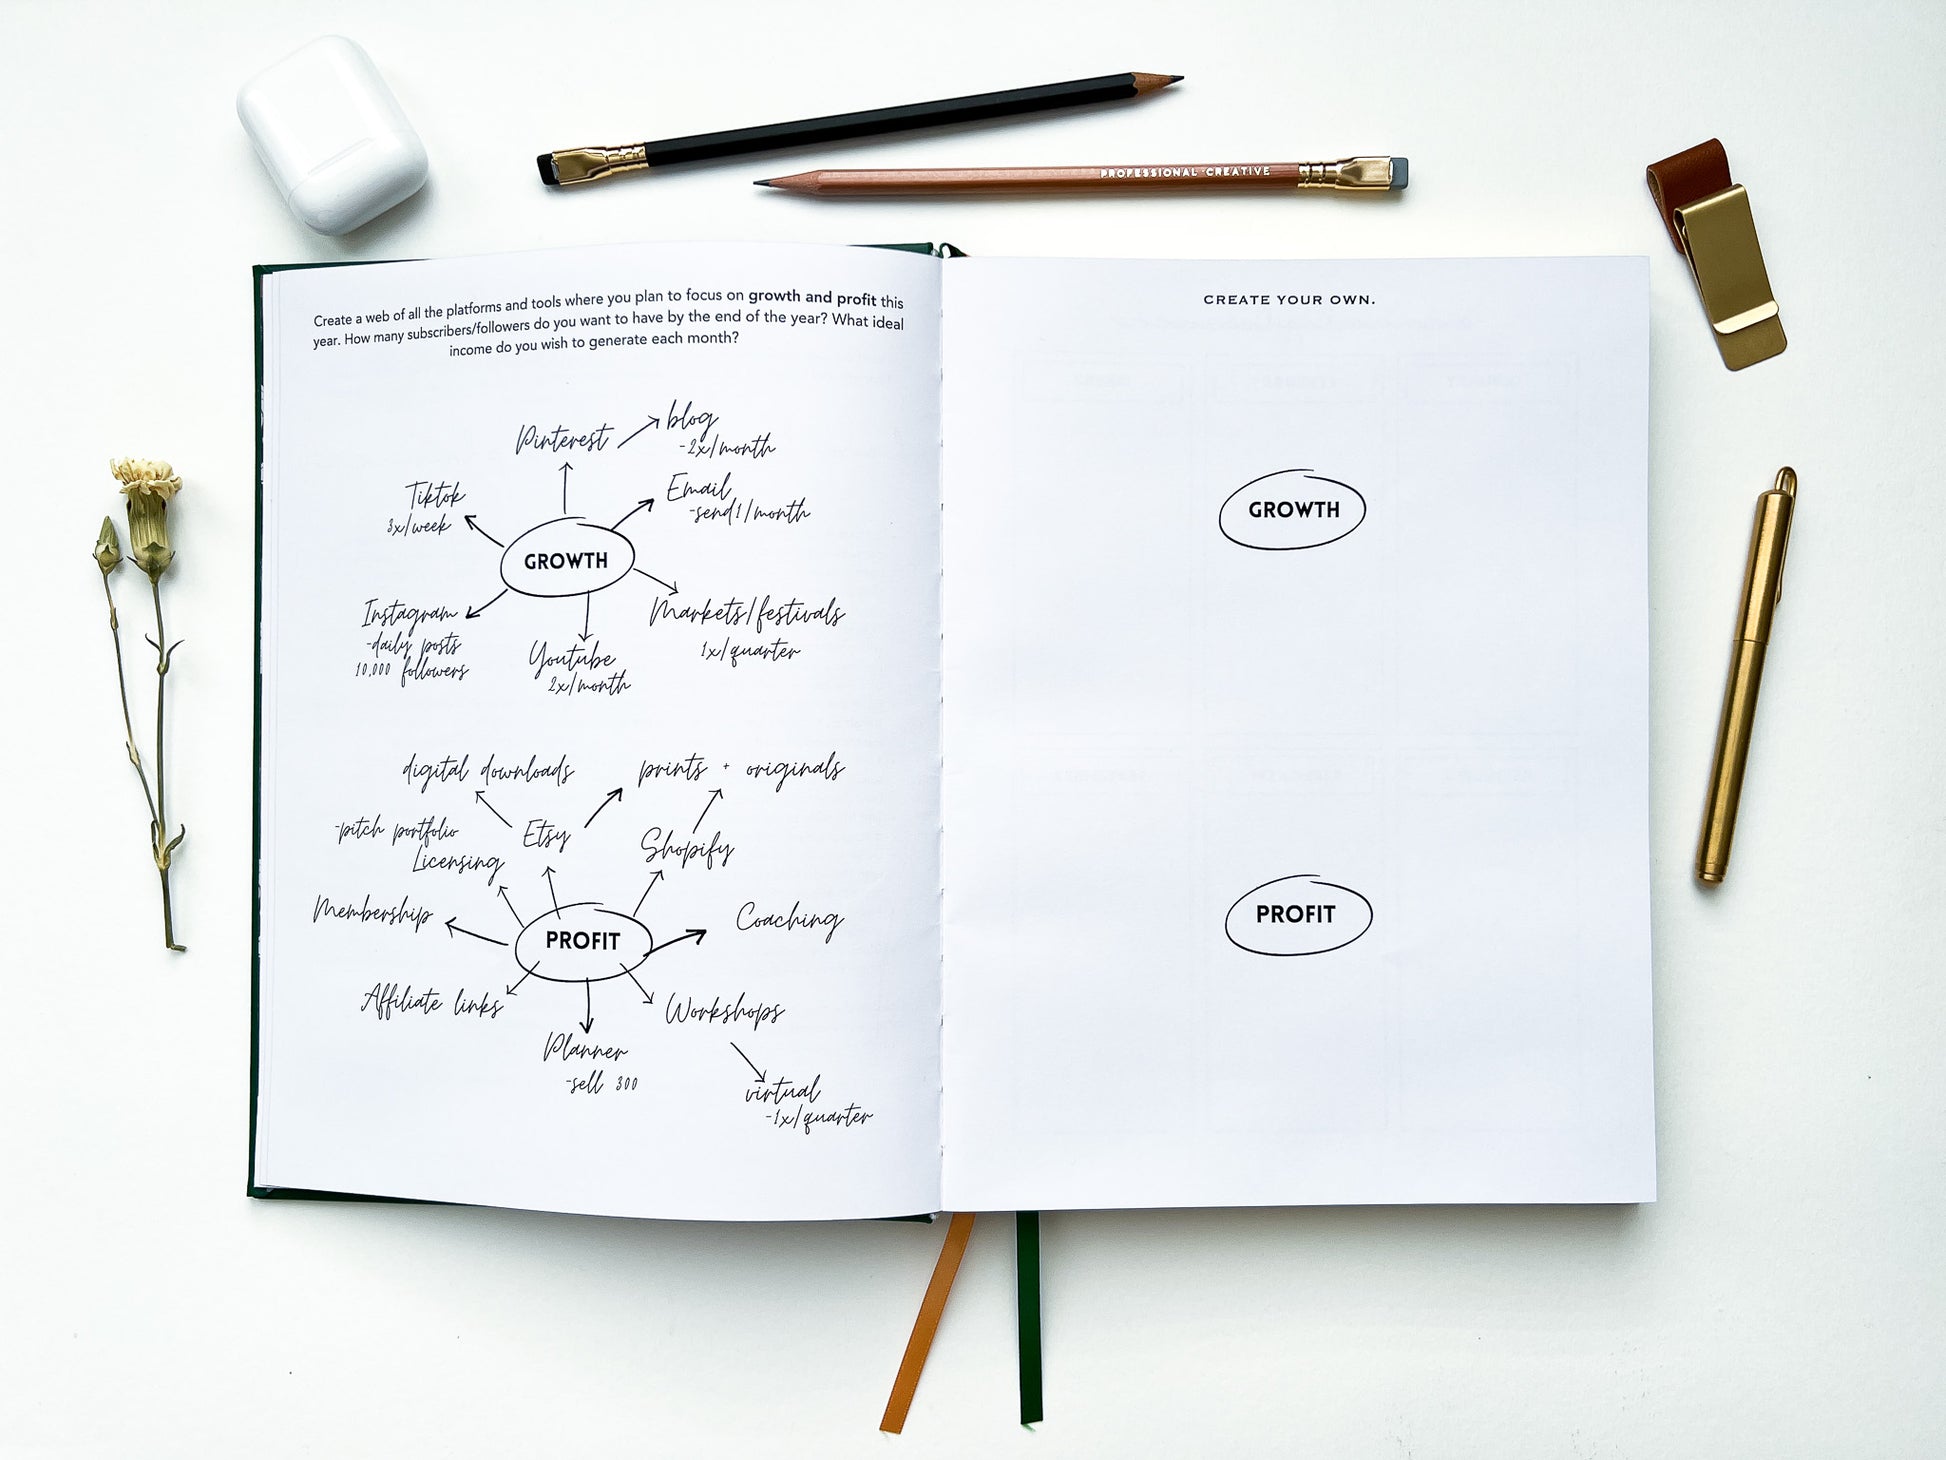 PROFESSIONAL CREATIVE
Create a web of all the platforms and tools where you plan to focus on growth and profit this
year. How many subscribers/followers do you want to have by the end of the year? What ideal
income do you wish to generate each month?
Pinterest
blog
-2x/month
Tiktok
3x/week
Email
-send 1/month
GROWTH
Instagram
-daily posts
10,000 followers
Youtube
2x/month
Markets/festivals
1x/quarter
digital downloads
prints + originals
-pitch portfolio
Licensing
Etsy
Shopify
Membership
PROFIT
Coaching
Affiliate links
Planner
-sell 300
Workshops
virtual
-1x/quarter
CREATE YOUR OWN.
GROWTH
PROFIT